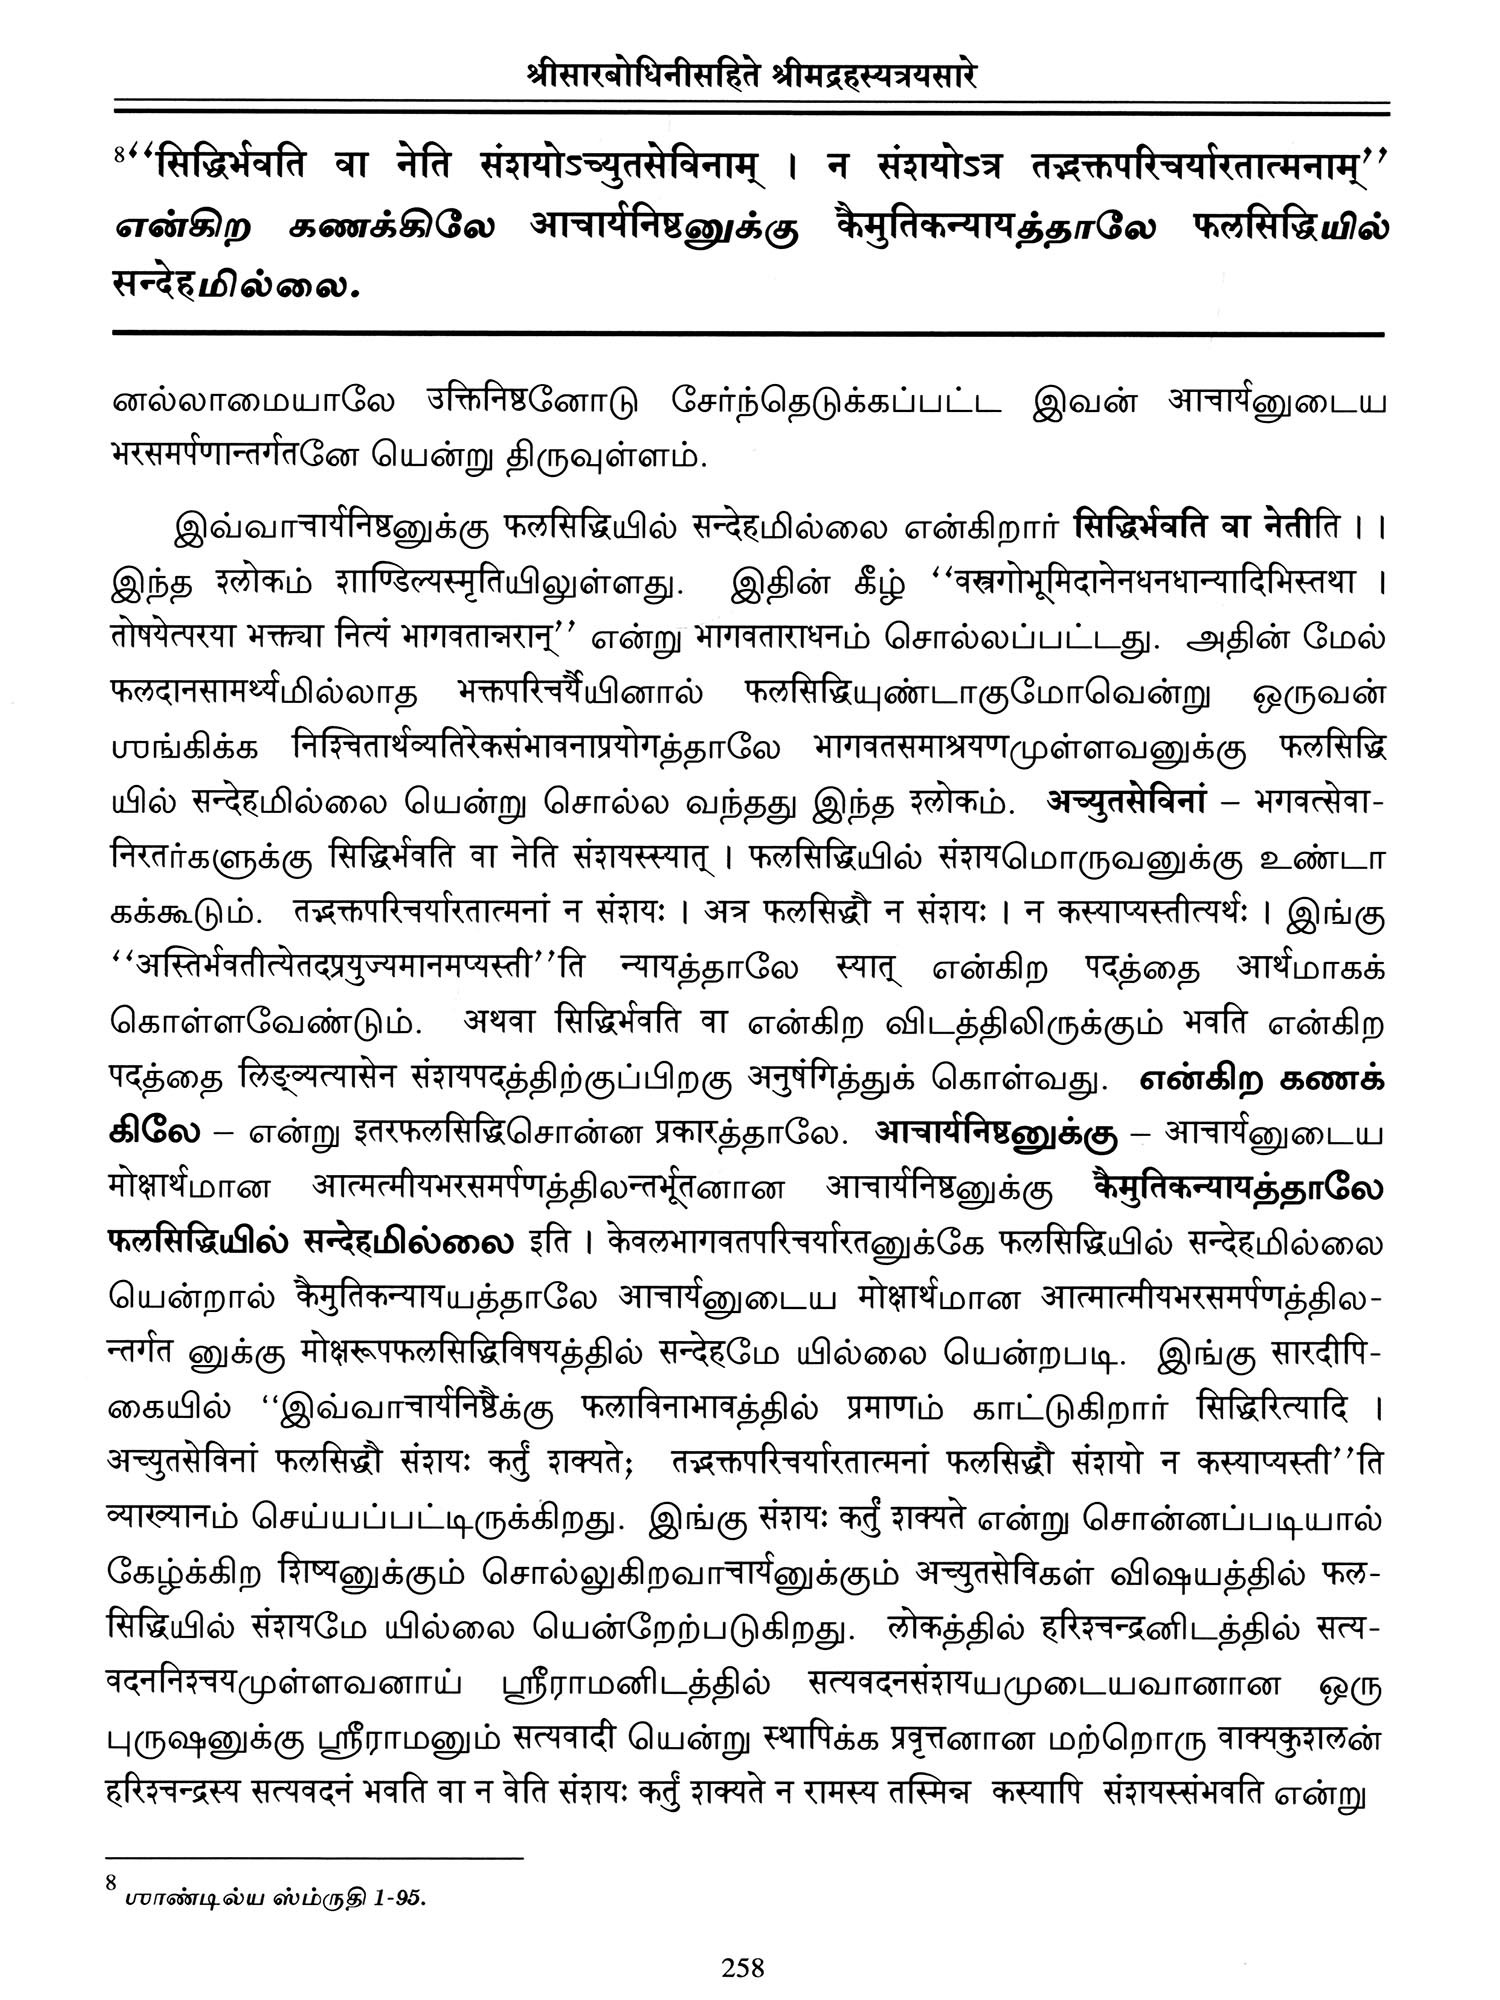 श्रीसारबोधिनीसहिते श्रीमद्रहस्यत्रयसारे
8‘‘सिद्धिर्भवति वा नेति संशयोऽच्युतसेविनाम् । न संशयोऽत्र तद्भक्तपरिचर्यारतात्मनाम्’’
என்கிற கணக்கிலே आचार्यनिष्ठனுக்கு कैमुतिकन्यायத்தாலே फलसिद्धिயில்
सन्देहமில்லை.
னல்லாமையாலே उक्तिनिष्ठனோடு சேர்ந்தெடுக்கப்பட்ட இவன் आचार्यனுடைய
भरसमर्पणान्तर्गतனே யென்று திருவுள்ளம்.
இவ்வாचार्यनिष्ठனுக்கு फलसिद्धिயில் सन्देहமில்லை என்கிறார் सिद्धिर्भवति वा नेतीति ।।
இந்த श्लोकம் शाण्डिल्यस्मृतिயிலுள்ளது. இதின் கீழ் ‘‘वस्त्रगोभूमिदानेनधनधान्यादिभिस्तथा ।
तोषयेत्परया भक्त्या नित्यं भागवतान्नरान्’’ என்று भागवताराधनம் சொல்லப்பட்டது. அதின் மேல்
फलदानसामर्थ्यமில்லாத भक्तपरिचर्यैயினால் फलसिद्धिயுண்டாகுமோவென்று ஒருவன்
ஶங்கிக்க निश्चितार्थव्यतिरेकसंभावनाप्रयोगத்தாலே भागवतसमाश्रयणமுள்ளவனுக்கு फलसिद्धि
யில் सन्देहமில்லை யென்று சொல்ல வந்தது இந்த श्लोकம். अच्युतसेविनां – भगवत्सेवा-
निरतர்களுக்கு सिद्धिर्भवति वा नेति संशयस्स्यात् । फलसिद्धिயில் संशयமொருவனுக்கு உண்டா
கக்கூடும். तद्भक्तपरिचर्यारतात्मनां न संशयः । अत्र फलसिद्धौ न संशयः । न कस्याप्यस्तीत्यर्थः । இங்கு
‘‘अस्तिर्भवतीत्येतदप्रयुज्यमानमप्यस्ती’’ति न्यायத்தாலே स्यात् என்கிற पदத்தை आर्थமாகக்
கொள்ளவேண்டும். अथवा सिद्धिर्भवति वा என்கிற விடத்திலிருக்கும் भवति என்கிற
पदத்தை लिङ्व्यत्यासेन संशयपदத்திற்குப்பிறகு अनुषंगिத்துக் கொள்வது. என்கிற கணக்
கிலே – என்று इतरफलसिद्धिசொன்ன प्रकारத்தாலே. आचार्यनिष्ठனுக்கு – आचार्यனுடைய
मोक्षार्थமான आत्मत्मीयभरसमर्पणத்திலन्तर्भूतனான आचार्यनिष्ठனுக்கு कैमुतिकन्यायத்தாலே
फलसिद्धिயில் सन्देहமில்லை इति । केवलभागवतपरिचर्यारतனுக்கே फलसिद्धिயில் सन्देहமில்லை
யென்றால் कैमुतिकन्यायயத்தாலே आचार्यனுடைய मोक्षार्थமான आत्मात्मीयभरसमर्पणத்தில-
न्तर्गत னுக்கு मोक्षरूपफलसिद्धिविषयத்தில் सन्देहமே யில்லை யென்றபடி. இங்கு सारदीपि-
கையில் ‘‘இவ்வாचार्यनिष्ठैக்கு फलाविनाभावத்தில் प्रमाणம் காட்டுகிறார் सिद्धिरित्यादि ।
अच्युतसेविनां फलसिद्धौ संशयः कर्तुं शक्यते; तद्भक्तपरिचर्यारतात्मनां फलसिद्धौ संशयो न कस्याप्यस्ती’’ति
व्याख्यानம் செய்யப்பட்டிருக்கிறது. இங்கு संशयः कर्तुं शक्यते என்று சொன்னப்படியால்
கேழ்க்கிற शिष्यனுக்கும் சொல்லுகிறவாचार्यனுக்கும் अच्युतसेविகள் விஷயத்தில் फल-
सिद्धिயில் संशयமே யில்லை யென்றேற்படுகிறது. लोकத்தில் हरिश्चन्द्रனிடத்தில் सत्य-
वदननिश्चयமுள்ளவனாய் ஸ்ரீராமனிடத்தில் सत्यवदनसंशयயமுடையவானான ஒரு
புருஷனுக்கு ஸ்ரீராமனும் सत्यवादी யென்று स्थापिக்க प्रवृत्तனான மற்றொரு वाक्यकुशलன்
हरिश्चन्द्रस्य सत्यवदनं भवति वा न वेति संशयः कर्तुं शक्यते न रामस्य तस्मिन्न कस्यापि संशयस्संभवति என்று
8 ஶாண்டில்ய ஸ்ம்ருதி 1-95.
258